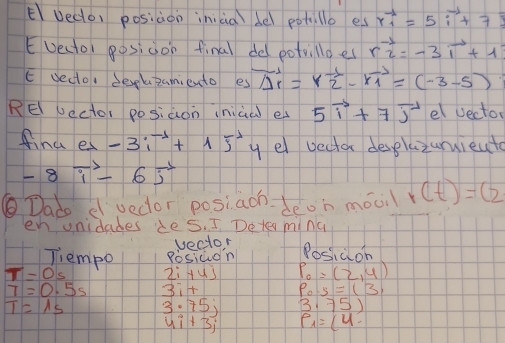 El vector posición inicial del potrillo es r1 = 5 i + 7 j
E vector posición final del potrillo es r2 = -3 i + 1
E vector desplazamiento es Δr = r2 - r1 = (-3-5)
R El vector posición inicial es 5 i + 7 j el vector
fina es -3 i + 1 j y el vector desplazamiento
- 8 i - 6 j
⑥ Dado el vector posición de un móvil r(t) = (2
en unidades de S.I Determina
Tiempo vector Posición Posición
T = 0s 2i + 4j P0 = (2,4)
T = 0.5s 3i + P0 s = (3,
T = 1s 3.75j 3.75)
4i + 3j P1 = (4